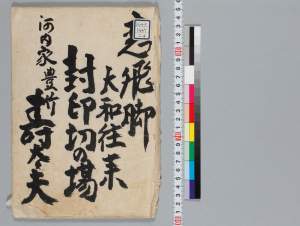 恋飛脚
大和往来
封印切の場
河内家豊竹
寿太夫